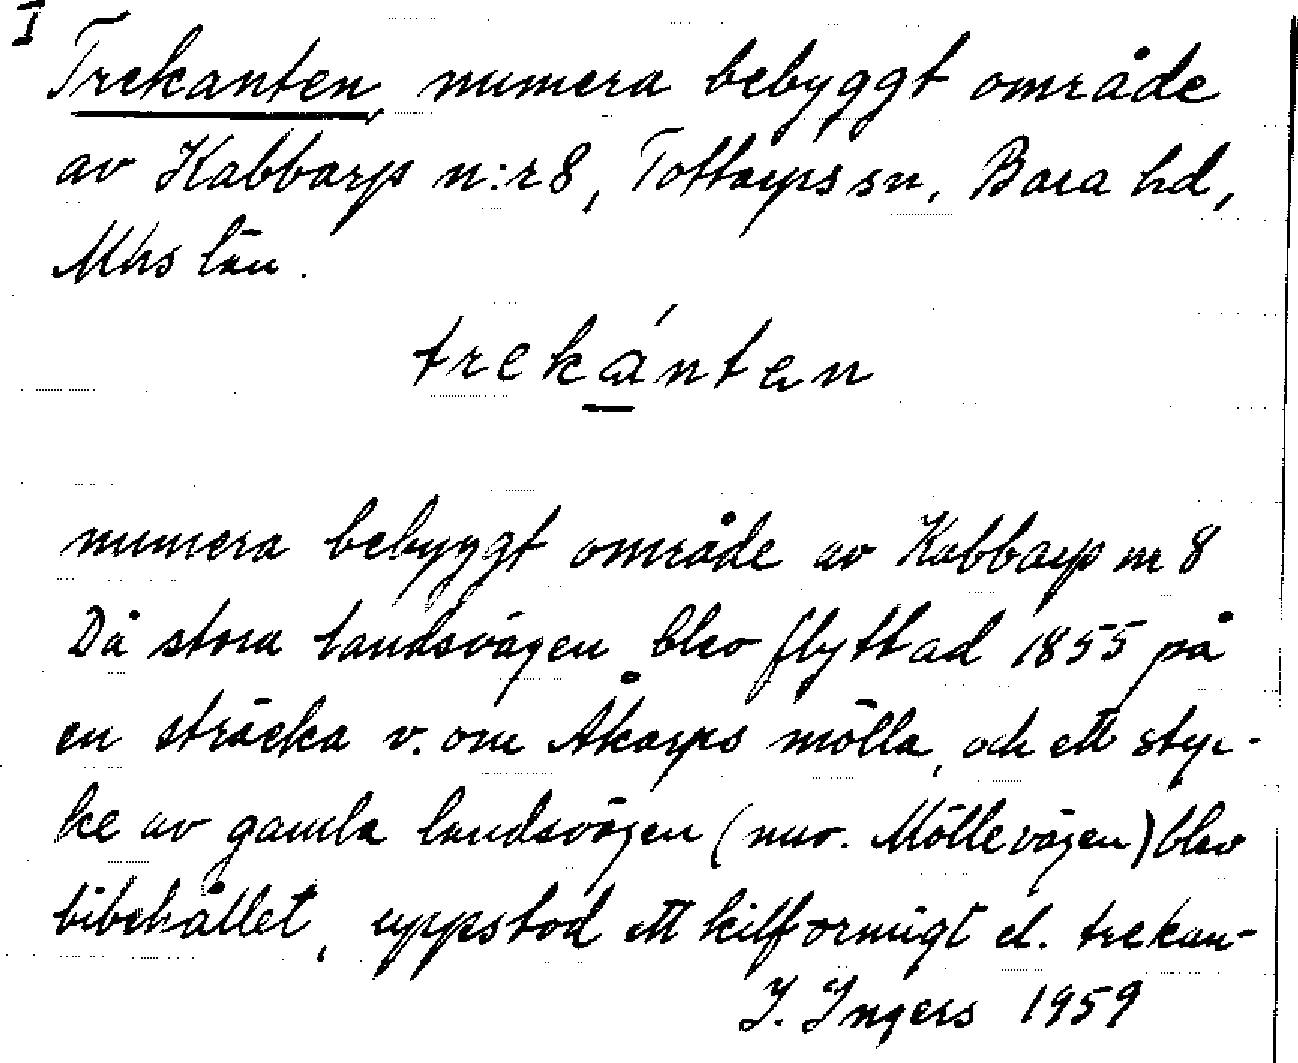 I
Trekanten, numera bebyggt område
av Kabbarp n:r 8, Tottarps sn, Bara hd,
Mhs län.
trekántən
numera bebyggt område av Kabbarp nr 8
Då stora landsvägen blev flyttad 1855 på
en sträcka v. om Åkarps mölla, och ett styc-
ke av gamla landsvägen (nuv. Möllevägen) blev
bibehållet, uppstod ett kilformigt el. trekan-
I. Ingers 1959